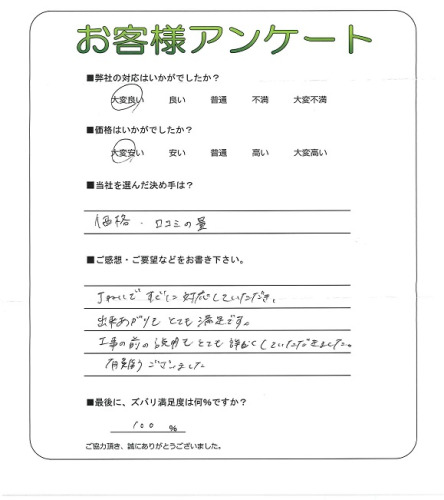 お客様アンケート
■弊社の対応はいかがでしたか？
大変良い 良い 普通 不満 大変不満
■価格はいかがでしたか？
大変安い 安い 普通 高い 大変高い
■当社を選んだ決め手は？
価格・口コミの量
■ご感想・ご要望などをお書き下さい。
すぐに対応していただき、
出来あがりもとても満足です。
工事の前の説明もとても詳しくしていただきました。
有難うございました
■最後に、ズバリ満足度は何%ですか？
100 %
ご協力頂き、誠にありがとうございました。